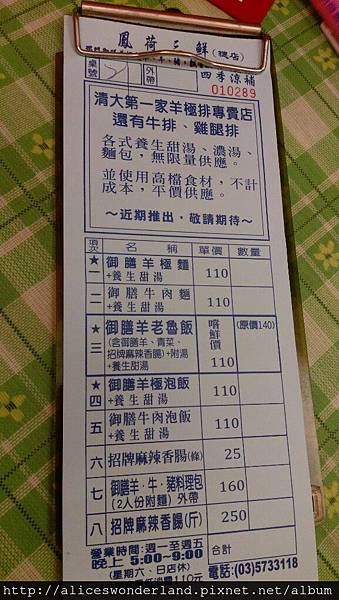 鳳荷三鮮(總店)
桌號
外帶
四季涼補
010289
清大第一家羊極排專賣店
還有牛排、雞腿排
各式養生甜湯、濃湯、
麵包,無限量供應。
並使用高檔食材,不計
成本,平價供應。
~近期推出,敬請期待~
項次 名稱 單價 數量
★一 御膳羊極麵+養生甜湯 110
二 御膳牛肉麵+養生甜湯 110
★三 御膳羊老魯飯 嚐鮮價 110 (原價140)
(含御膳羊、青菜、
招牌麻辣香腸)+附湯
+養生甜湯
★四 御膳羊極泡飯+養生甜湯 110
五 御膳牛肉泡飯+養生甜湯 110
六 招牌麻辣香腸(條) 25
七 御膳羊、牛、豬料理包 160
(2人份附麵)外帶
八 招牌麻辣香腸(斤) 250
營業時間:週一至週五
晚上 5:00~9:00 合計
(星期六、日店休)
110元
電話:(03)5733118
http://aliceswonderland.pixnet.net/album